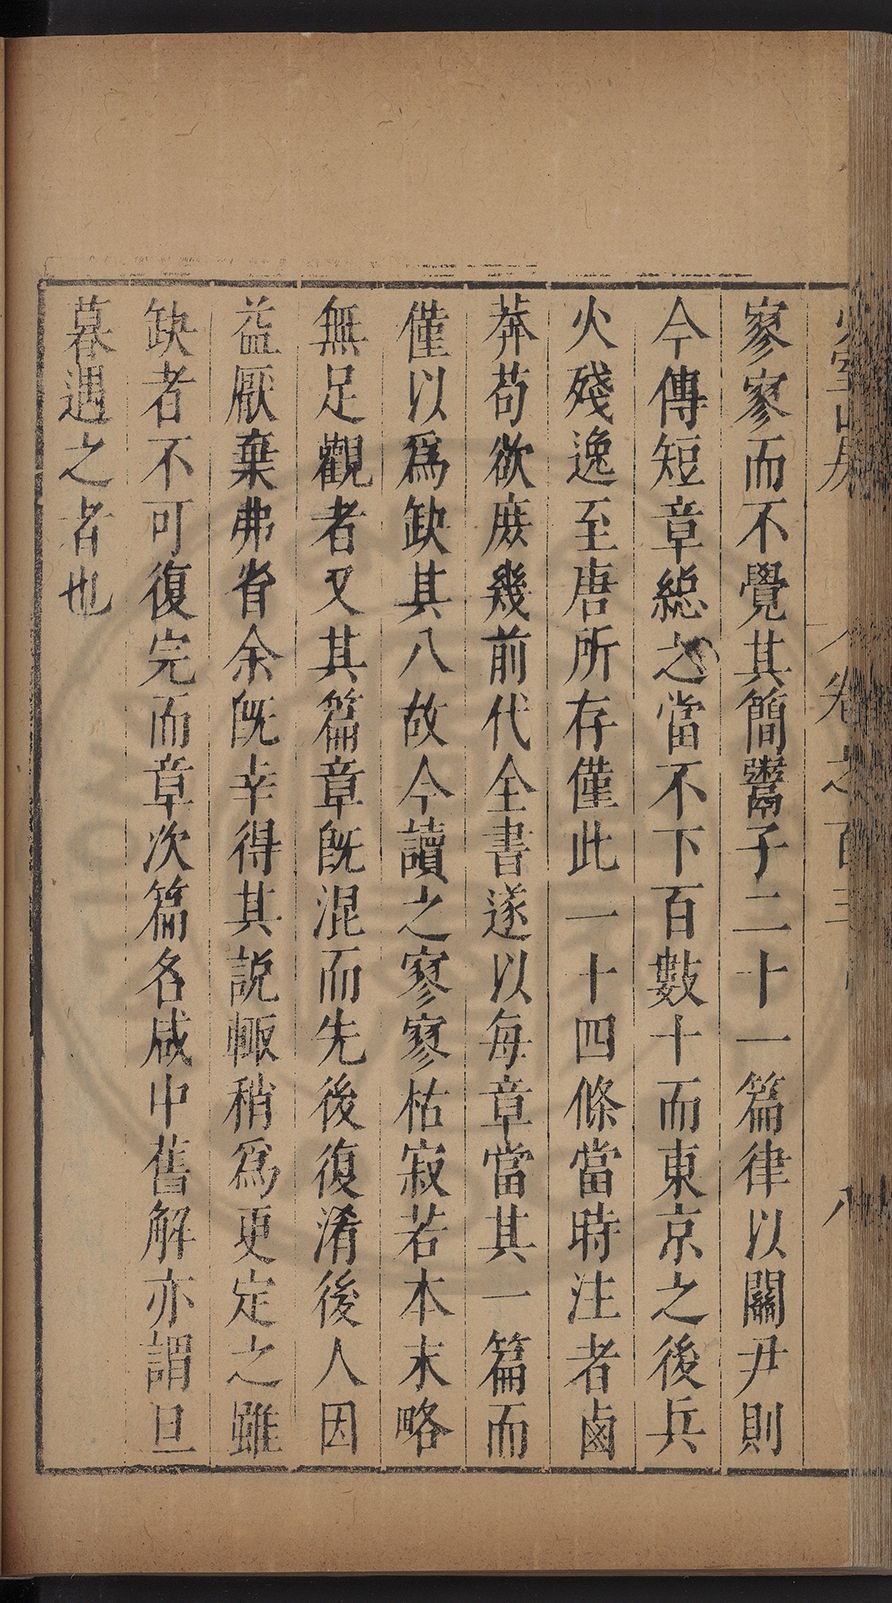 寥寥而不覺其簡鬻子二十一篇律以關尹則
今傳短章總之當不下百數十而東京之後兵
火殘逸至唐所存僅此一十四條當時注者鹵
莽苟欲庶幾前代全書遂以每章當其一篇而
僅以爲缺其八故今讀之寥寥枯寂若本末略
無足觀者又其篇章旣混而先後復淆後人因
益厭棄弗省余旣幸得其説輙稍爲更定之雖
缺者不可復完而章次篇名咸中舊解亦謂旦
暮遇之者也